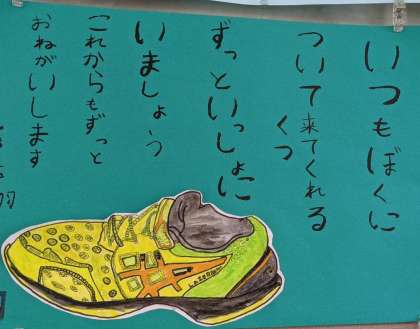 いつもぼくに
ついて来てくれる
くつ
ずっといっしょに
いましょう
これからもずっと
おねがいします